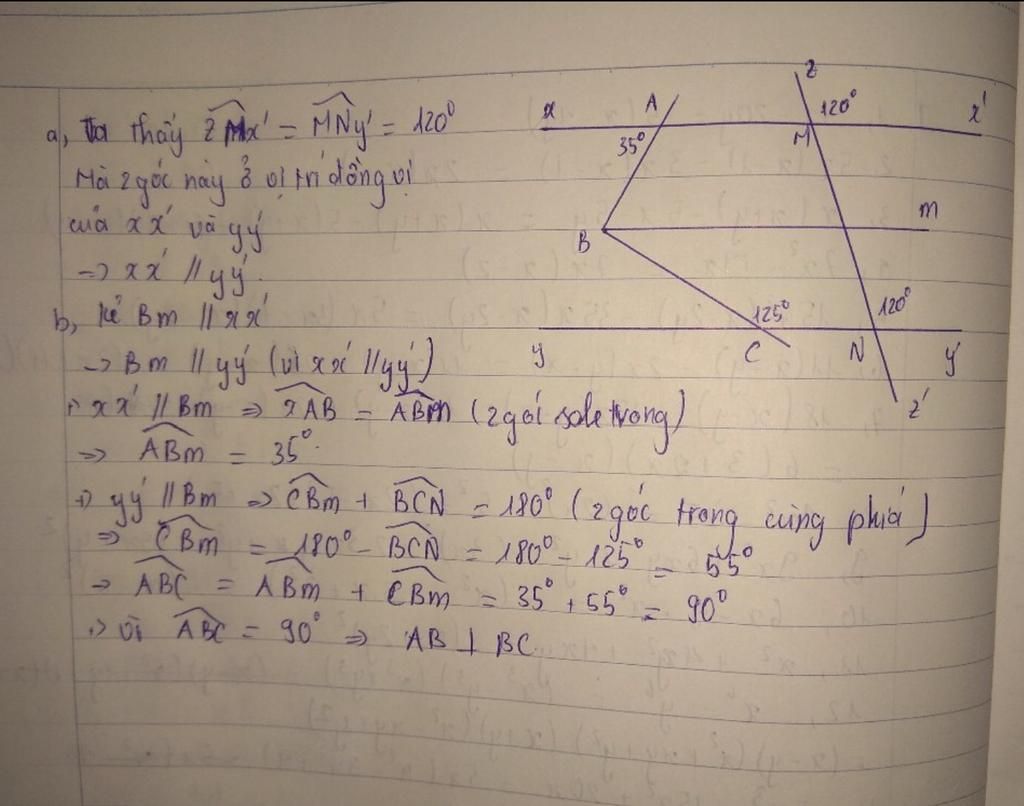 a, Ta thấy zMx' = MNy' = 120°
Mà 2 góc này ở vị trí đồng vị
của xx' và yy'
→ xx' // yy'.
b, Kẻ Bm // xx'
→ Bm // yy' (vì xx' // yy')
+) xx' // Bm ⇒ xAB = ABm (2 góc sole trong)
⇒ ABm = 35°.
+) yy' // Bm ⇒ CBm + BCN = 180° (2 góc trong cùng phía)
⇒ CBm = 180° - BCN = 180° - 125° = 55°
→ ABC = ABm + CBm = 35° + 55° = 90°
+) Vì ABC = 90° ⇒ AB ⊥ BC
z
x A 120° x'
35° M
B m
125° 120°
y C N y'
z'